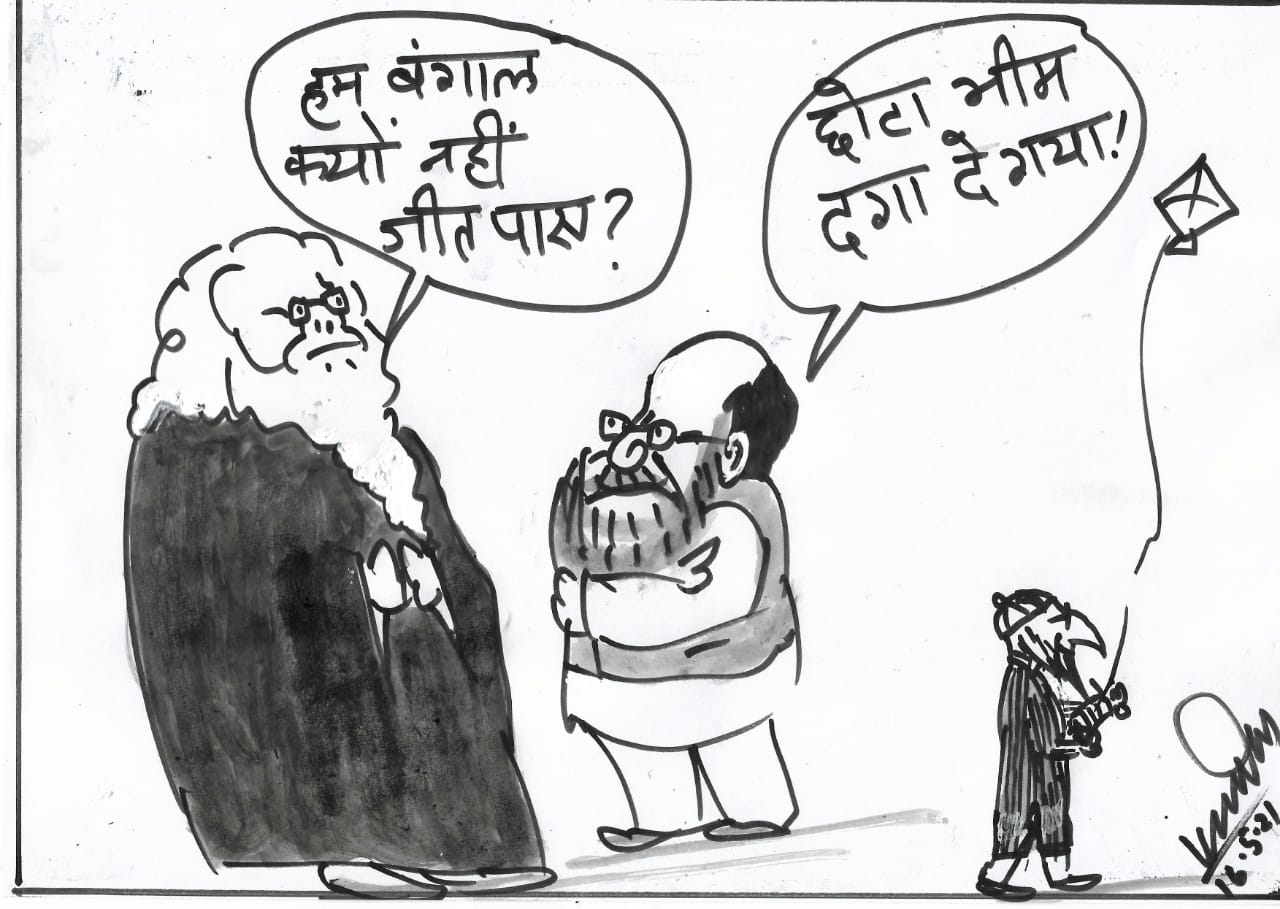 हम बंगाल
क्यों नहीं
जीत पास?
छोटा भीम
दगा दे गया!
16.5.21